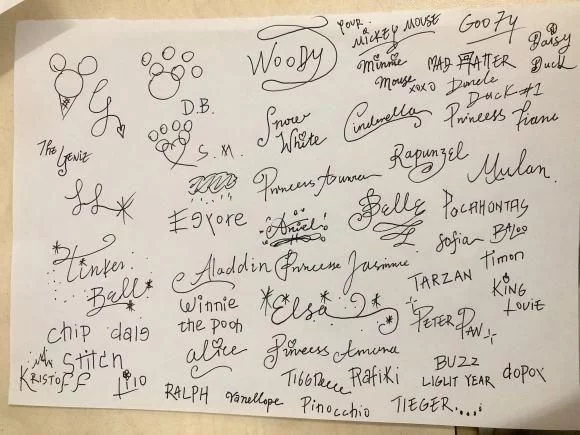 WOODY
Your.
MICKEY MOUSE
GOOFY
Daisy
Duck
Minnie
Mouse
xoxo
MAD HATTER
Duck #1
D.B.
Snow
White
Cinderella
Princess Tiana
The
Genie
S.M.
Rapunzel
Mulan.
Princess Aurora
Belle
POCAHONTAS
EEyore
Ariel
Sofia
BALOO
timon
Tinker
Bell
Aladdin
Princess Jasmine
TARZAN
KiNG
LOUiE
winnie
the pooh
Elsa
PETER PAN
chip
dale
Stitch
alice
Princess
KRiSTOFF
Rafiki
BUZZ
LIGHT YEAR
dopey
RALPH
Vanellope
Pinocchio
TiEGER....